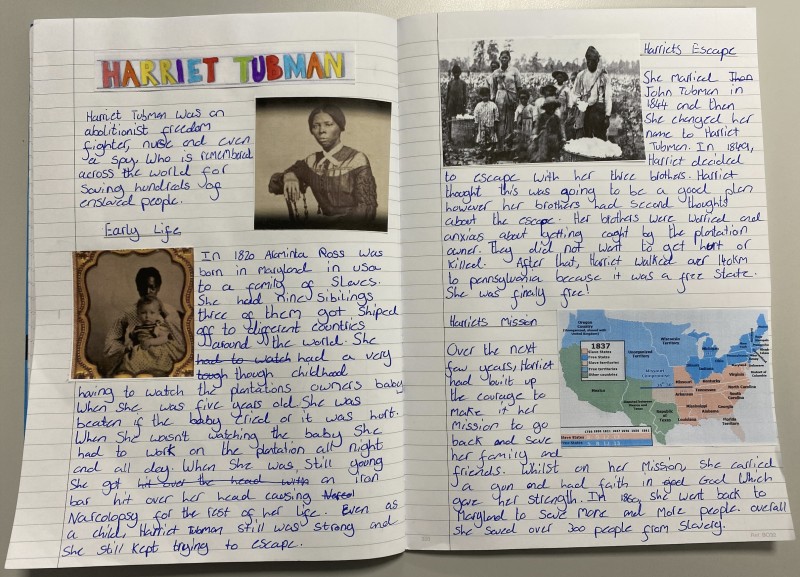 HARRIET TUBMAN
Harriet Tubman was an
abolitionist freedom
fighter, nurse and even
a spy. Who is remembered
across the world for
saving hundreds of
enslaved people.
Early Life
In 1820 Araminta Ross was
born in Maryland in USA
to a family of Slaves.
She had nine Sibilings
three of them got Shiped
off to different countries
around the world. She
had to watch had a very
tough though childhood
having to watch the plantations owners baby
When she was five years old. She was
beaten if the baby cried or it was hurt.
When She wasn't watching the baby She
had to work on the plantation all night
and all day. When She was, Still young
She got hit over the head with an iron
bar hit over her head causing
Narcolopsy for the rest of her life. Even as
a child, Harriet Tubman still was strong and
she still kept trying to escape.
Harriets Escape
She married
John Tubman in
1844 and then
She changed her
name to Harriet
Tubman. In 1849,
Harriet decided
to escape with her three brothers. Harriet
thought this was going to be a good plan
however her brothers had second thoughts
about the escape. Her brothers were worried and
anxias about getting caght by the plantation
owner. They did not want to get hurt or
killed. After that, Harriet walked over 140km
to pennsylvania because it was a free State.
She was finally free!
Harriets Mission
Over the next
few years, Harriet
had built up
the courage to
Make it her
Mission to go
back and save
her family and
friends. Whilst on her Mission, She carried
a gun and had faith in god God which
gave her strength. In 1860 she went back to
Maryland to save More and More people. overall
She saved over 300 people from Slavery.
Oregon
Country
Unorganized
Territory
Wisconsin
Territory
1837
Slave States
Free States
Slave territories
Free territories
Other countries
Mexico
Republic
of
Texas
Missouri
Arkansas
Louisiana
Mississippi
Alabama
Georgia
Tennessee
Kentucky
Virginia
North Carolina
South Carolina
Florida
Territory
Illinois
Slave States
Free States